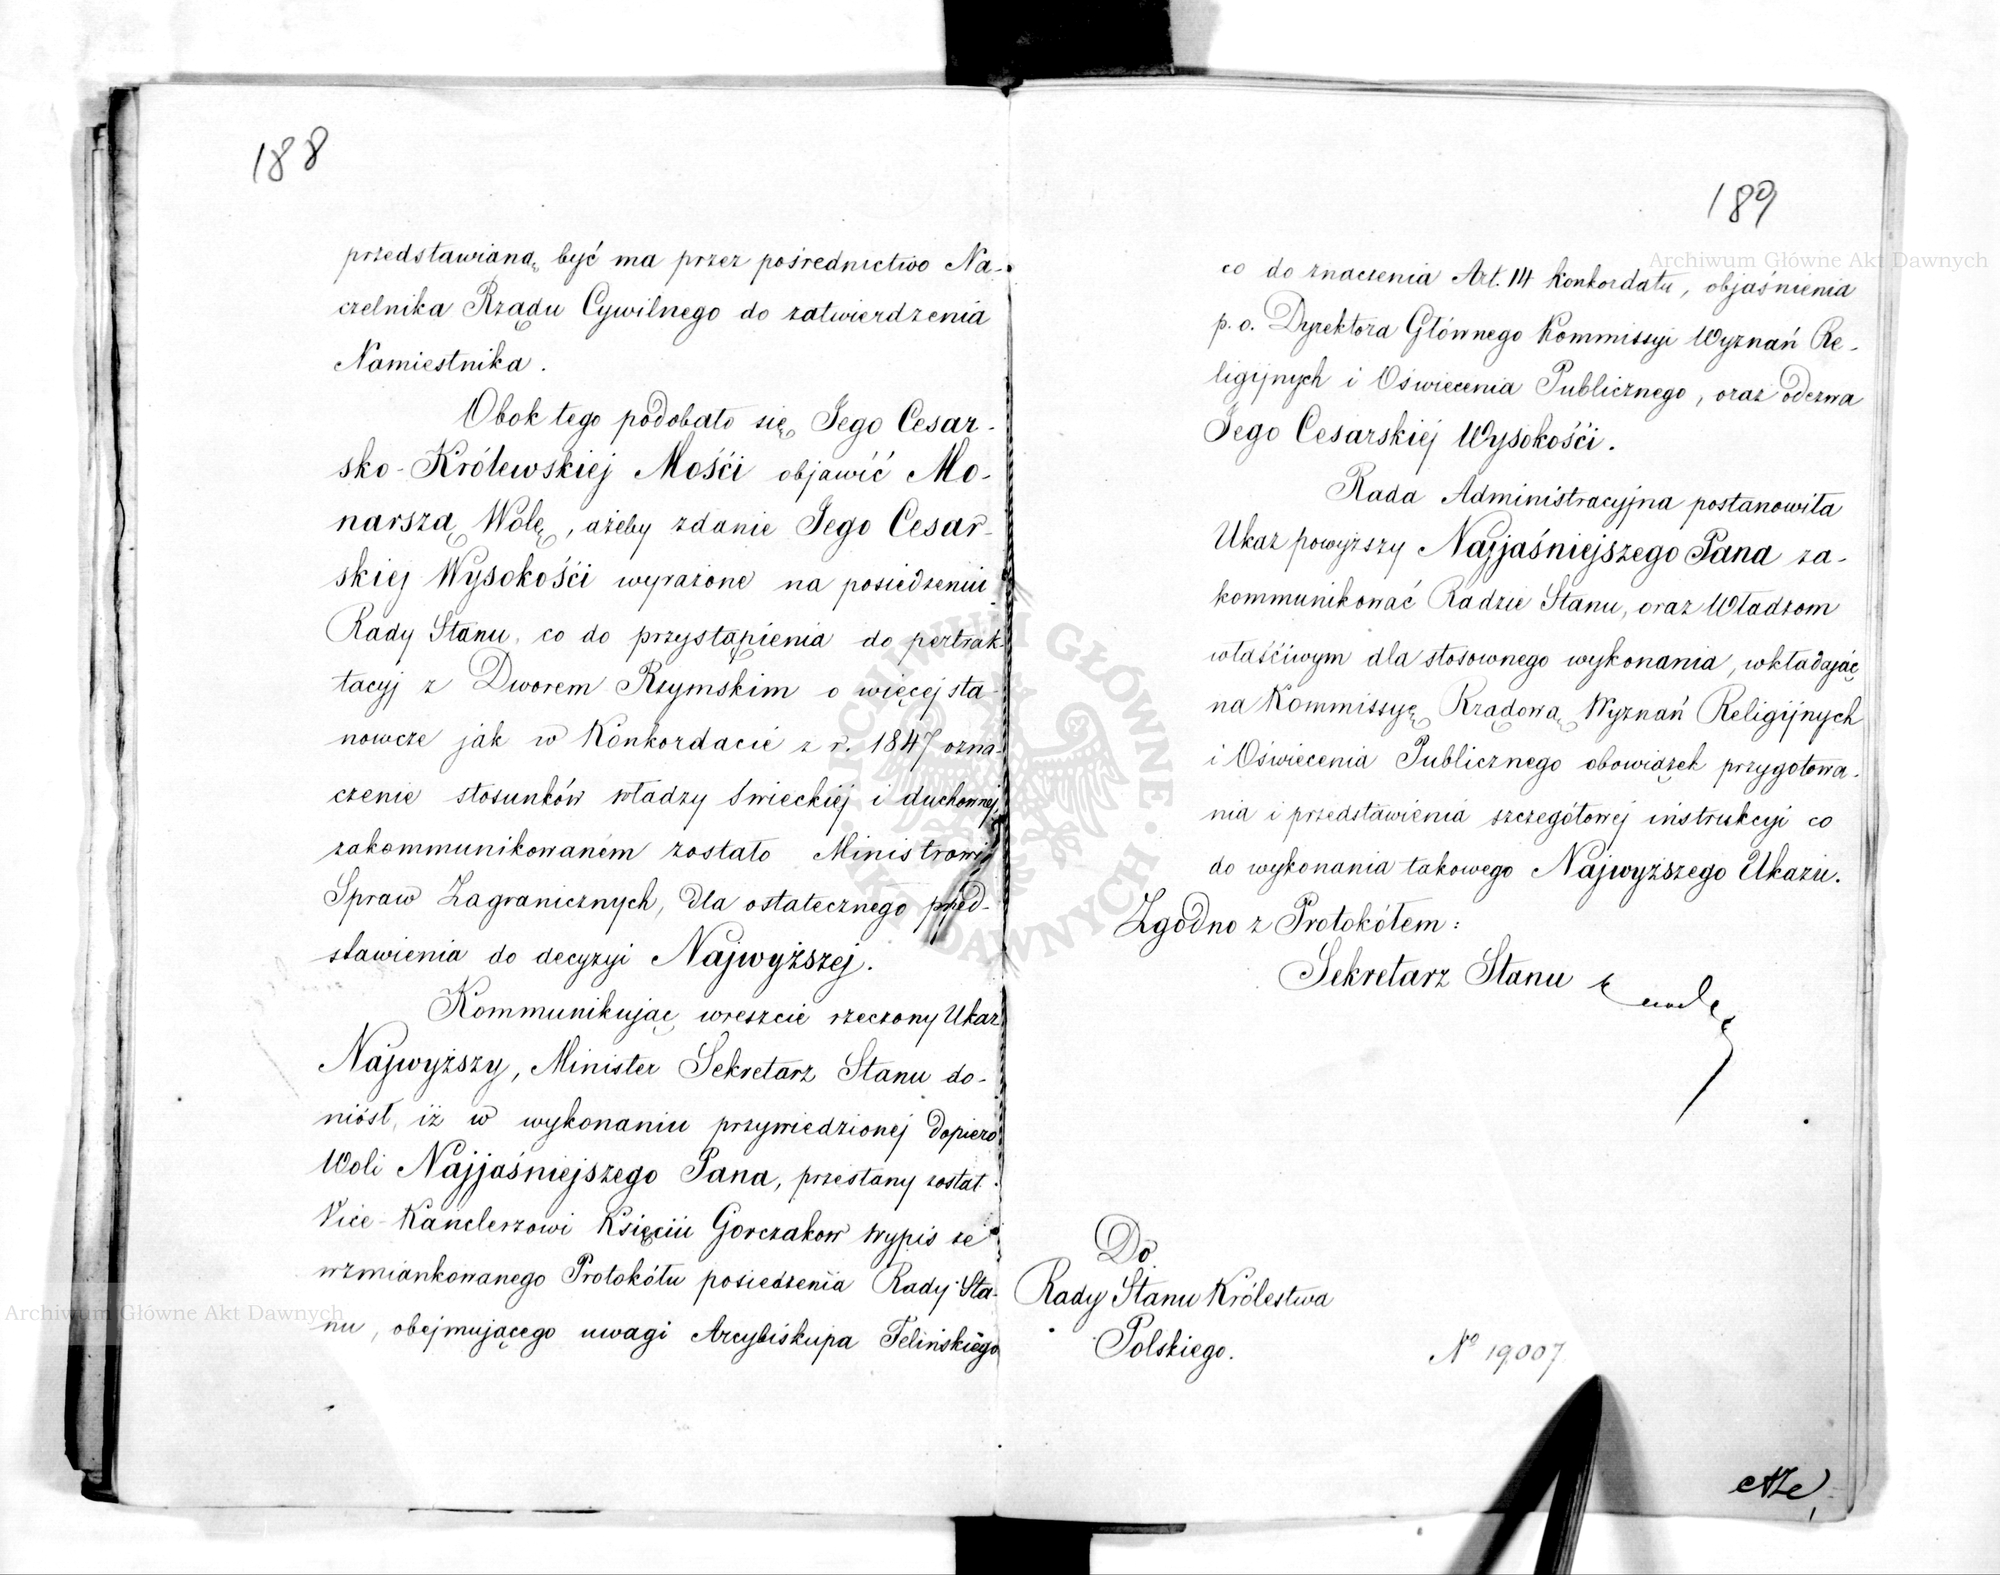 188
przedstawianą być ma przez pośrednictwo Na-
czelnika Rządu Cywilnego do zatwierdzenia
Namiestnika.
Obok tego podobało się Jego Cesar-
sko-Królewskiej Mości objawić Mo-
narszą Wolę, ażeby zdanie Jego Cesar-
skiej Wysokości wyrażone na posiedzeniu
Rady Stanu, co do przystąpienia do pertrak-
tacyj z Dworem Rzymskim o więcej sta-
nowcze jak w Konkordacie z r. 1847 ozna-
czenie stosunków władzy świeckiej i duchownej
zakommunikowaném zostało Ministrowi
Spraw Zagranicznych, dla ostatecznego przed-
stawienia do decyzyi Najwyższej.
Kommunikując wreszcie rzeczony Ukaz
Najwyższy, Minister Sekretarz Stanu do-
niósł, iż w wykonaniu przywiedzionej dopiero
Woli Najjaśniejszego Pana, przesłany został
Vice-Kanclerzowi Księciu Gorczakow wypis ze
wzmiankowanego Protokółu posiedzenia Rady Sta-
nu, obejmującego uwagi Arcybiskupa Felińskiego
189
co do znaczenia Art. 14 Konkordatu, objaśnienia
p. o. Dyrektora Głównego Kommissyi Wyznań Re-
ligijnych i Oświecenia Publicznego, oraz odezwa
Jego Cesarskiej Wysokości.
Rada Administracyjna postanowiła
Ukaz powyższy Najjaśniejszego Pana za-
kommunikować Radzie Stanu, oraz Władzom
właściwym dla stosownego wykonania, wkładając
na Kommissyę Rządową Wyznań Religijnych
i Oświecenia Publicznego obowiązek przygotowa-
nia i przedstawienia szczegółowej instrukcyi co
do wykonania takowego Najwyższego Ukazu.
Zgodno z Protokółem:
Sekretarz Stanu
Do
Rady Stanu Królestwa
Polskiego.
No 19007
Archiwum Główne Akt Dawnych
Archiwum Główne Akt Dawnych
ARCHIWUM GŁÓWNE AKT DAWNYCH